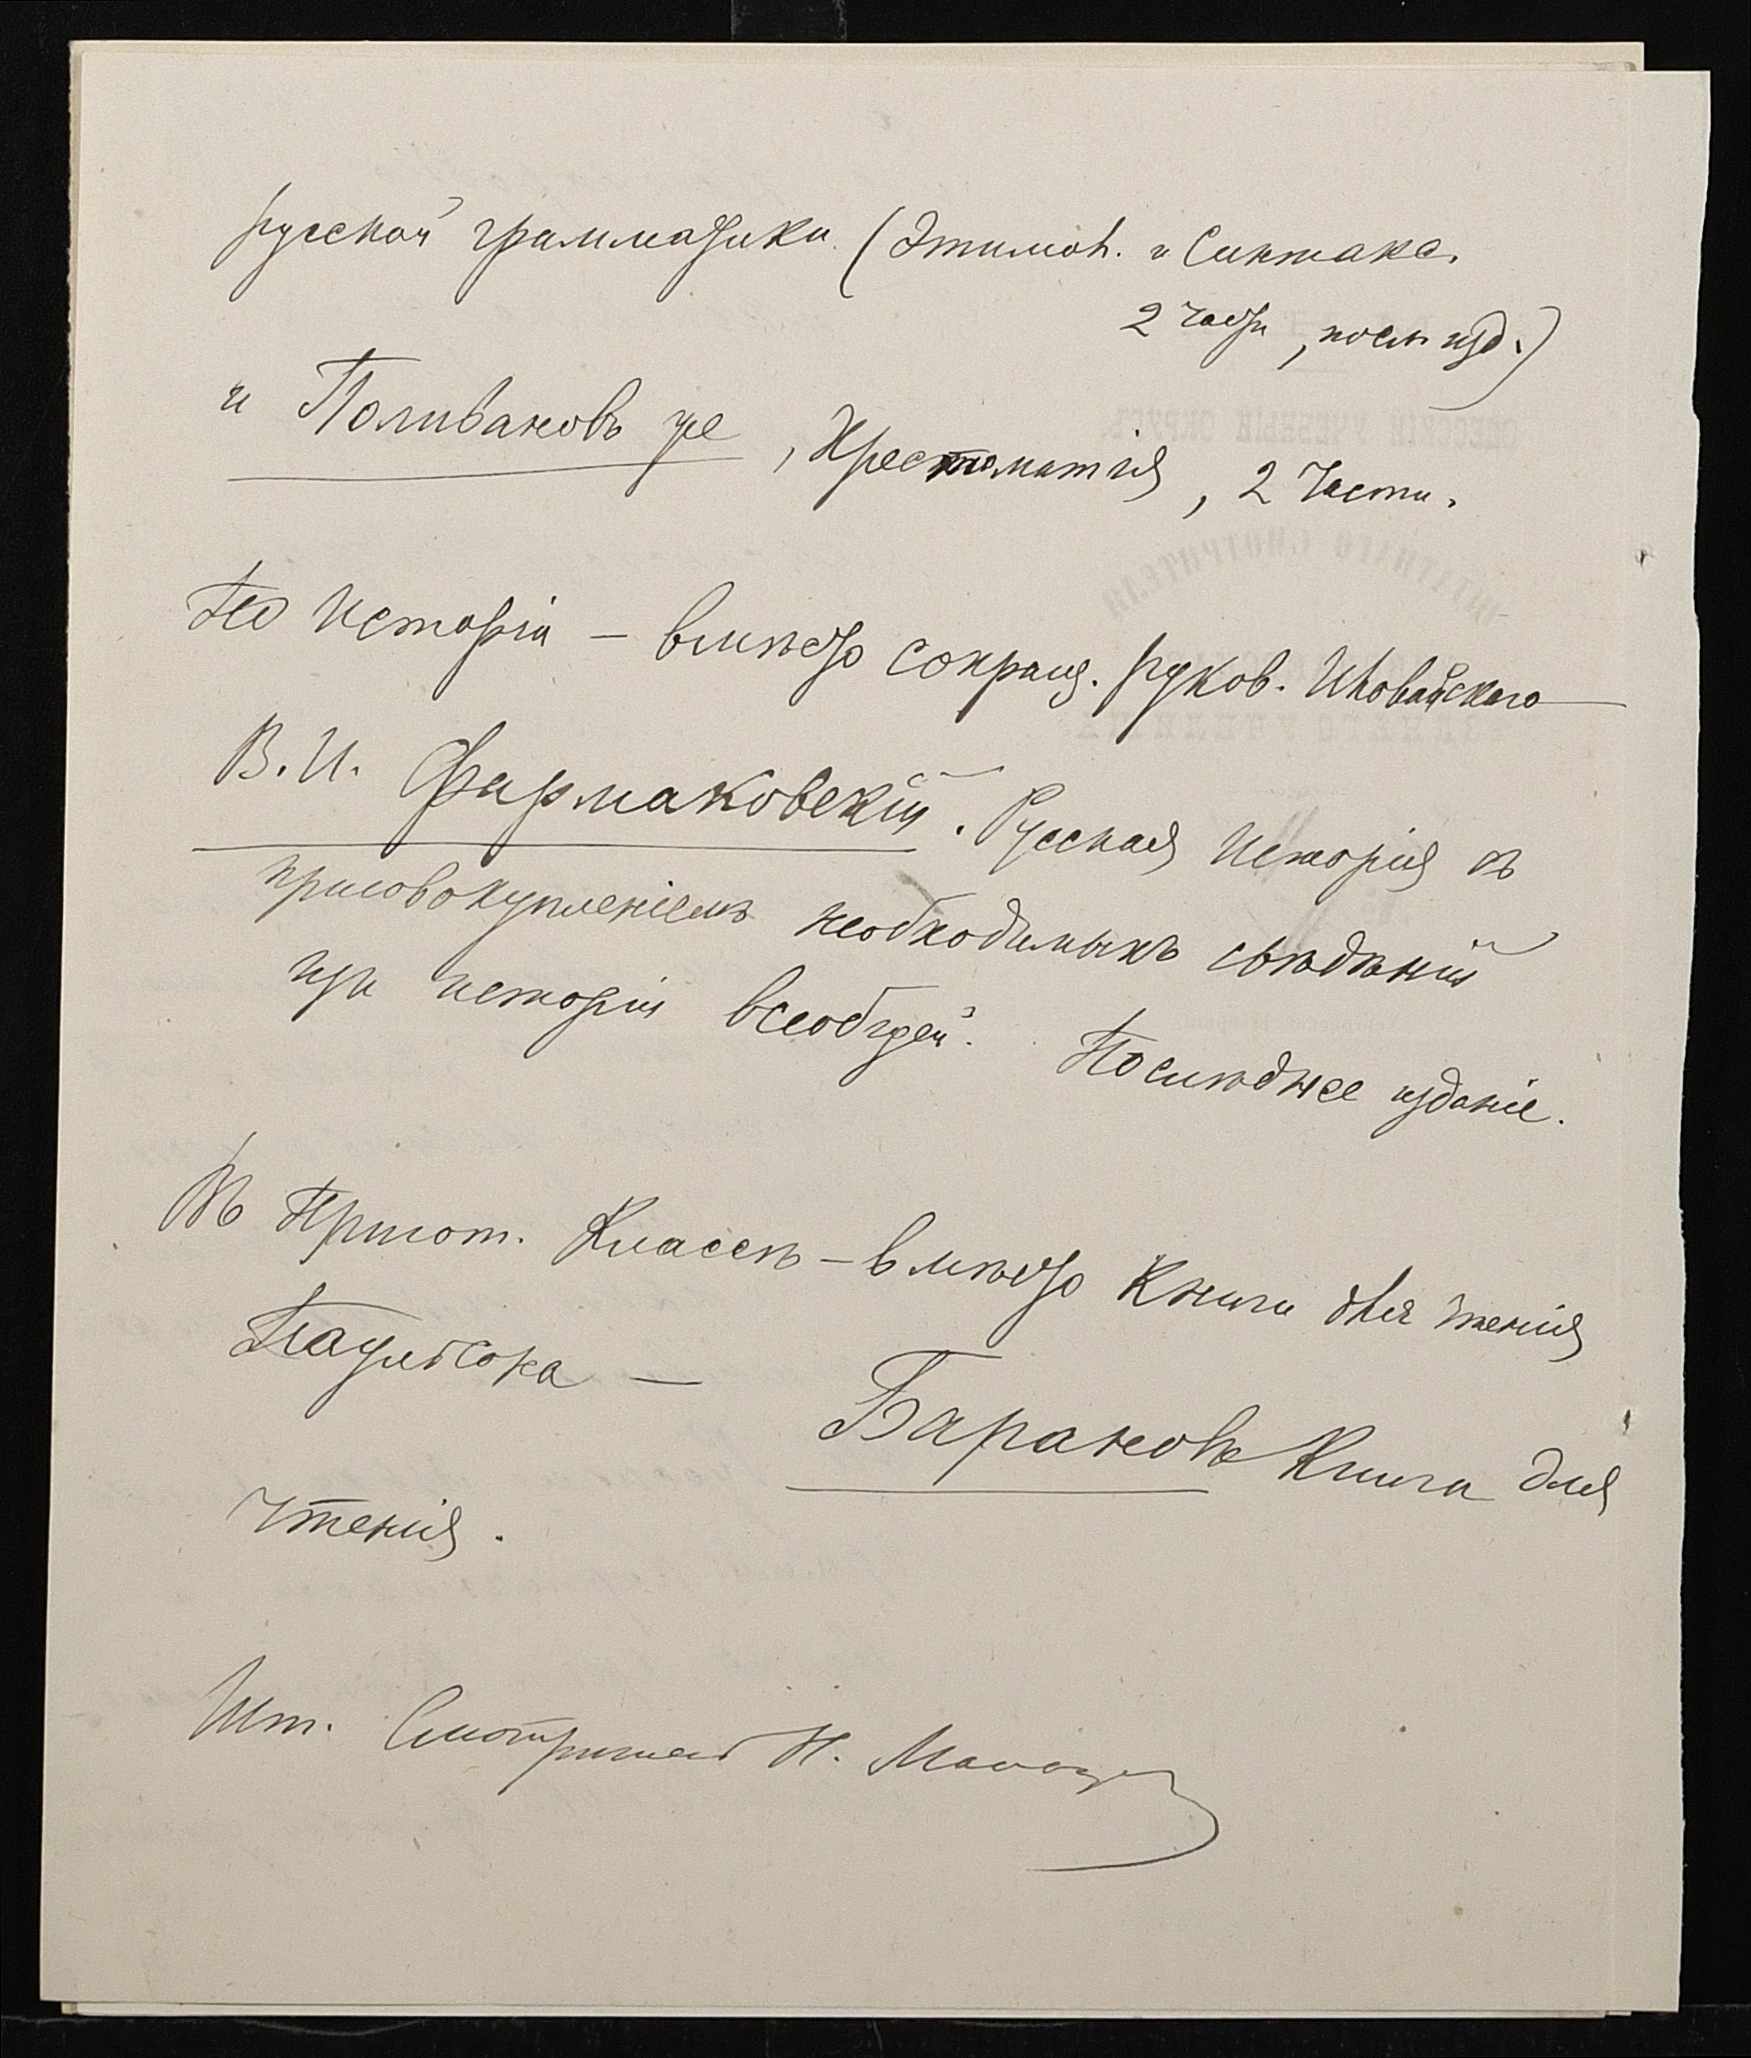 русской грамматики (Этимол. и Синтакс.
2 части, посл изд.)
и Поливановъ же, Хрестоматія, 2 Части.
По Исторіи – вмѣсто сокращ. руков. Иловайскаго
В. И. Фармаковскій. Русская Исторія съ
присовокупленіемъ необходимыхъ свѣдѣній
изъ исторіи всеобщей. Послѣднее изданіе.
Въ Пригот. Классѣ – вмѣсто Книги для чтенія
Паульсона – Барановъ Книга для
Чтенія.
Шт. Смотритель Н.